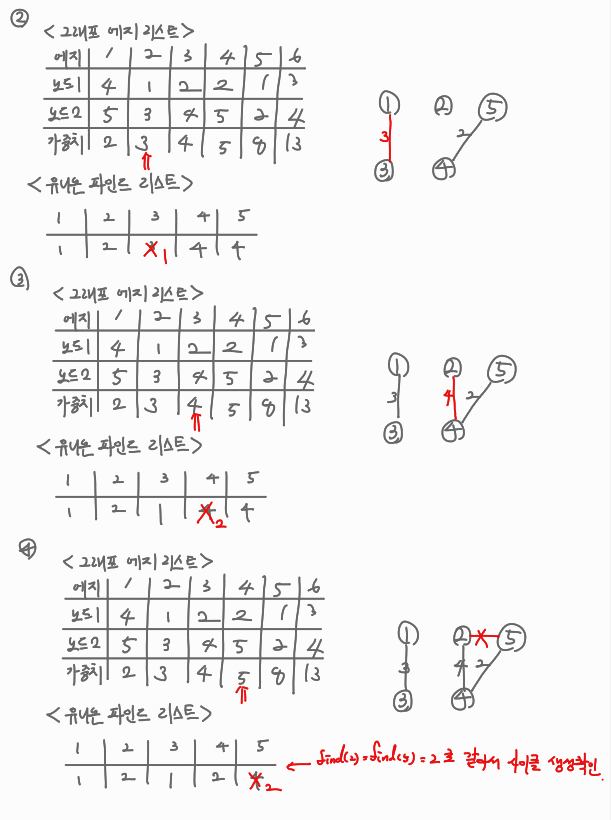 ②
<그래프 에지 리스트>
에지 1 2 3 4 5 6
노드1 4 1 2 2 1 3
노드2 5 3 4 5 2 4
가중치 2 3 4 5 8 13
<유니온 파인드 리스트>
1 2 3 4 5
1 2 1 4 4
1 2 5
3 2
3 4
③
<그래프 에지 리스트>
에지 1 2 3 4 5 6
노드1 4 1 2 2 1 3
노드2 5 3 4 5 2 4
가중치 2 3 4 5 8 13
<유니온 파인드 리스트>
1 2 3 4 5
1 2 1 2 4
1 2 5
3 4 2
3 4
④
<그래프 에지 리스트>
에지 1 2 3 4 5 6
노드1 4 1 2 2 1 3
노드2 5 3 4 5 2 4
가중치 2 3 4 5 8 13
<유니온 파인드 리스트>
1 2 3 4 5
1 2 1 2 4 2
1 2 5
3 4 2
3 4
← find(2) = find(5) = 2 로 같아서 사이클 생성확인.